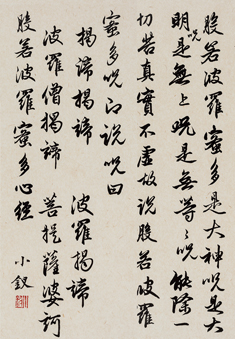 般若波羅蜜多是大神咒是大
明咒是無上咒是無等〻咒能除一
切苦真實不虛故説般若波羅
蜜多咒即説咒曰
揭諦揭諦 波羅揭諦
波羅僧揭諦 菩提薩婆訶
般若波羅蜜多心經 小釵